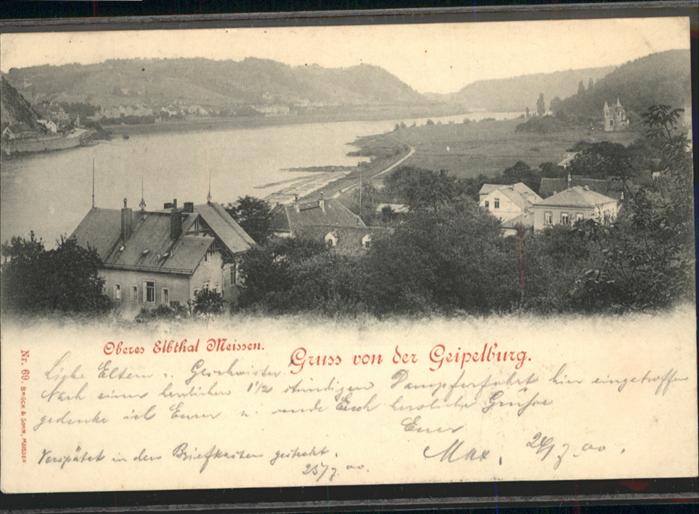 Oberes Elbthal Meissen.
Gruss von der Geipelburg.
Liebe Eltern u. Geschwister.
Nach einer herrlichen 1 1/2 stündigen Dampferfahrt hier eingetroffen
gedenke ich Eurer u. sende Euch herzliche Grüsse
Euer
Max, 24/7.00.
Verspätet in den Briefkasten gesteckt.
25/7.00.
Nr. 69. BRÜCK & SOHN, MEISSEN